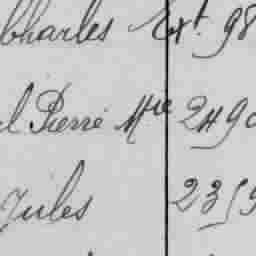 Charles Ext. 98
l Pierre Mie 249
Jules 2359